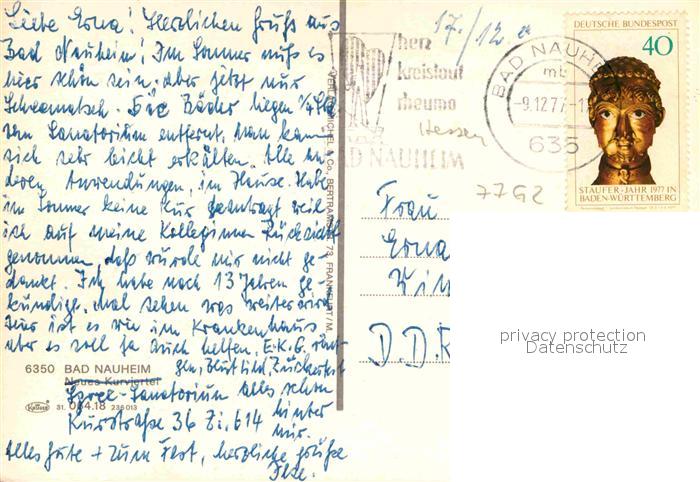 Liebe Erna! Herzlichen Gruß aus
Bad Nauheim! Im Sommer muß es
hier schön sein, aber jetzt nur
Schneematsch. Die Bäder liegen 1/4 Std.
vom Sanatorium entfernt, man kann
sich sehr leicht erkälten. Alle an-
deren Anwendungen, im Hause. Habe
im Sommer keine Kur beantragt weil
ich auf meine Kolleginnen Rücksicht
genommen, daß wurde mir nicht ge-
dankt. Ich habe nach 13 Jahren ge-
kündigt, mal sehen was weiter wird
Hier ist es wie im Krankenhaus
aber es soll ja auch helfen. E.K.G.
gen, Blutbild, Zuckertest
6350 BAD NAUHEIM
Neues Kurviertel
alles schon
hinter
mir.
-Sanatorium
Kurstraße 36 Zi. 614
31. 064.18 236013
Alles Gute + zum Fest, herzliche Grüße
Ilse.
VERLAG MICHEL & Co., BERTRAMSTR. 73, FRANKFURT/M.
17./12
herz
kreislauf
rheuma
BAD NAUHEIM
Hessen
BAD NAUHEIM
mb
-9.12.77-1
635
DEUTSCHE BUNDESPOST
40
STAUFER-JAHR 1977 IN
BADEN-WÜRTTEMBERG
77G2
Frau
Erna
D.D.R
privacy protection
Datenschutz